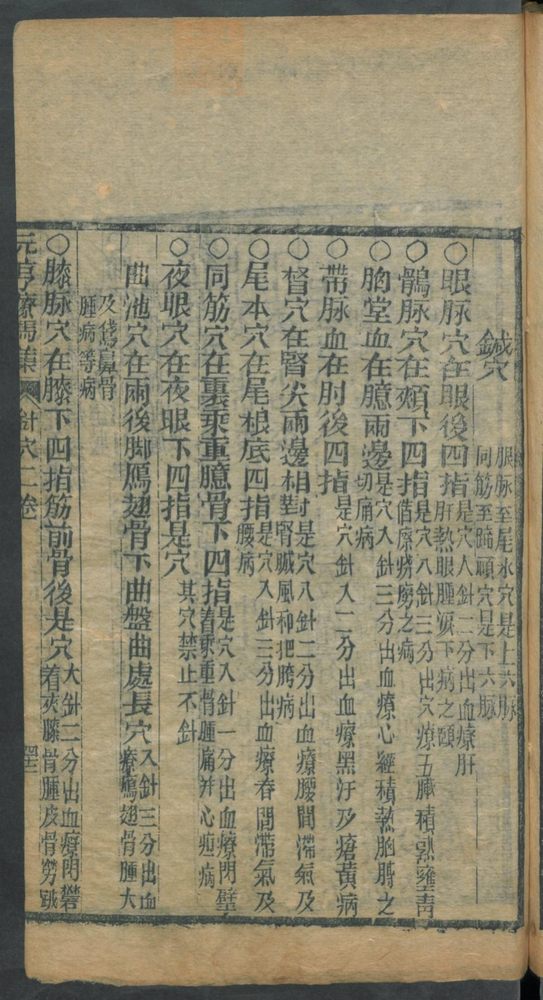 鍼穴
眼脉至尾本穴是上六脉
同筋至蹄頭穴是下六脉
○眼脉穴在眼後四指是穴入針二分出血療肝
肝熱眼腫淚下病之頤
○鶻脉穴在頰下四指是穴入針三分出穴療五臟積熟壅毒
○胸堂血在臆兩邊是穴入針三分出血療心經積熱胸膊之
切痛病
○帶脉血在肘後四指是穴針入二分出血療黑汗及瘡黄病
○督穴在腎尖兩邊相對是穴入針二分出血療腰間滯氣及
腎臟風和把胯病
○尾本穴在尾根底四指是穴入針三分出血療脊間滯氣及
腰病
○同筋穴在裏乘重臆骨下四指是穴入針一分出血療閃壁
着乘重骨腫痛并心疸病
○夜眼穴在夜眼下四指是穴其穴禁止不針
曲池穴在兩後脚鴈翅骨下曲盤曲處長穴入針三分出血
療鴈翅骨腫大
及鵞鼻骨
腫病等病
○膝脉穴在膝下四指筋前骨後是穴大針二分出血療閃礬
着夾膝骨腫皮骨勞
元亨療馬集 針穴二卷